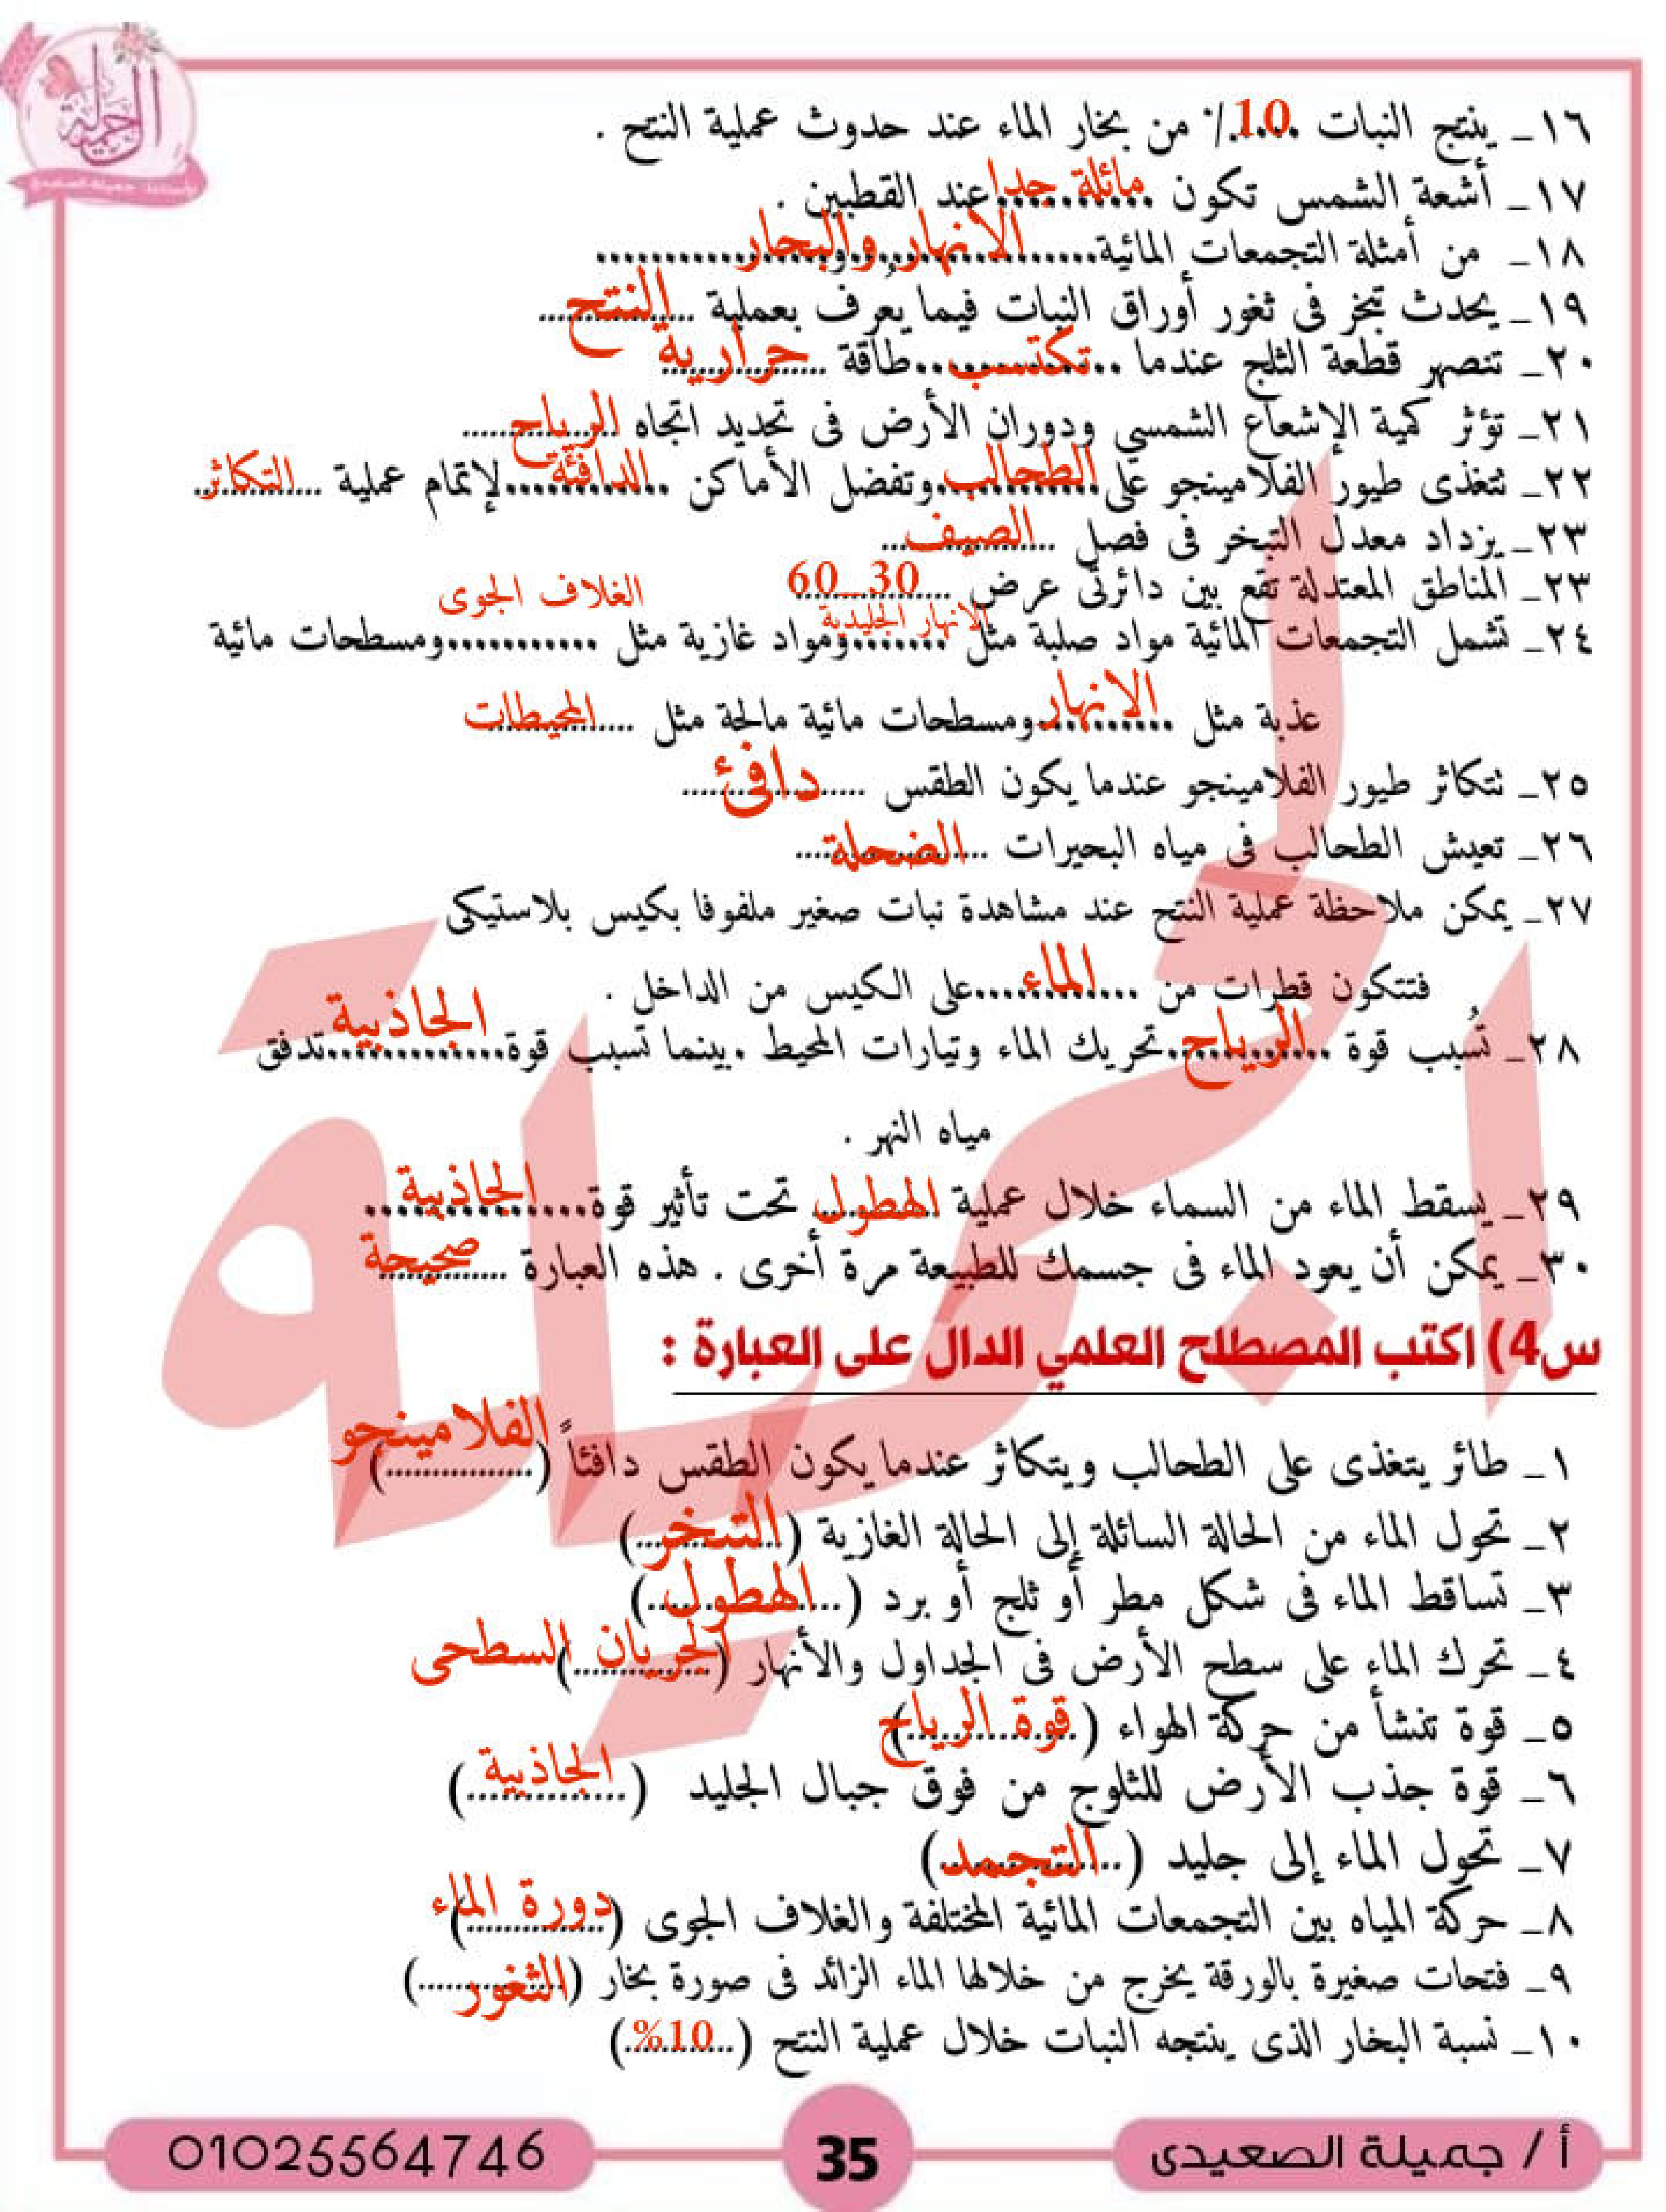 الجميلة
١٦_ ينتج النبات ..10..٪ من بخار الماء عند حدوث عملية النتح .
١٧_ أشعة الشمس تكون ....مائلة جدا....عند القطبين .
١٨_ من أمثلة التجمعات المائية......الانهار....و..والبحار............
١٩_ يحدث تبخر فى ثغور أوراق النبات فيما يُعرف بعملية ....النتح....
٢٠_ تنصهر قطعة الثلج عندما ....تكتسب....طاقة ....حرارية....
٢١_ تؤثر كمية الإشعاع الشمسي ودوران الأرض فى تحديد اتجاه ....الرياح....
٢٢_ تتغذى طيور الفلامينجو على....الطحالب....وتفضل الأماكن ....الدافئة....لإتمام عملية ....التكاثر....
٢٣_ يزداد معدل التبخر فى فصل ....الصيف....
٢٣_ المناطق المعتدلة تقع بين دائرتى عرض ....30_60....
٢٤_ تشمل التجمعات المائية مواد صلبة مثل ....الانهار الجليدية....ومواد غازية مثل ....الغلاف الجوى....ومسطحات مائية
عذبة مثل ....الانهار....ومسطحات مائية مالحة مثل ....المحيطات....
٢٥_ تتكاثر طيور الفلامينجو عندما يكون الطقس ....دافئ....
٢٦_ تعيش الطحالب فى مياه البحيرات ....الضحلة....
٢٧_ يمكن ملاحظة عملية النتح عند مشاهدة نبات صغير ملفوفا بكيس بلاستيكى
فتتكون قطرات من ....الماء....على الكيس من الداخل .
٢٨_ تُسبب قوة ....الرياح....تحريك الماء وتيارات المحيط .بينما تسبب قوة....الجاذبية....تدفق
مياه النهر .
٢٩_ يسقط الماء من السماء خلال عملية ....الهطول.... تحت تأثير قوة....الجاذبية....
٣٠_ يمكن أن يعود الماء فى جسمك للطبيعة مرة أخرى . هذه العبارة ....صحيحة....
س4) اكتب المصطلح العلمي الدال على العبارة :
١_ طائر يتغذى على الطحالب ويتكاثر عندما يكون الطقس دافئاً (....الفلامينجو....)
٢_ تحول الماء من الحالة السائلة إلى الحالة الغازية (....التبخر....)
٣_ تساقط الماء فى شكل مطر أو ثلج أو برد (....الهطول....)
٤_ تحرك الماء على سطح الأرض فى الجداول والأنهار (....الجريان السطحى....)
٥_ قوة تنشأ من حركة الهواء (....قوة الرياح....)
٦_ قوة جذب الأرض للثلوج من فوق جبال الجليد (....الجاذبية....)
٧_ تحول الماء إلى جليد (....التجمد....)
٨_ حركة المياه بين التجمعات المائية المختلفة والغلاف الجوى (....دورة الماء....)
٩_ فتحات صغيرة بالورقة يخرج من خلالها الماء الزائد فى صورة بخار (....الثغور....)
١٠_ نسبة البخار الذى ينتجه النبات خلال عملية النتح (....%10....)
أ / جميلة الصعيدى
35
01025564746